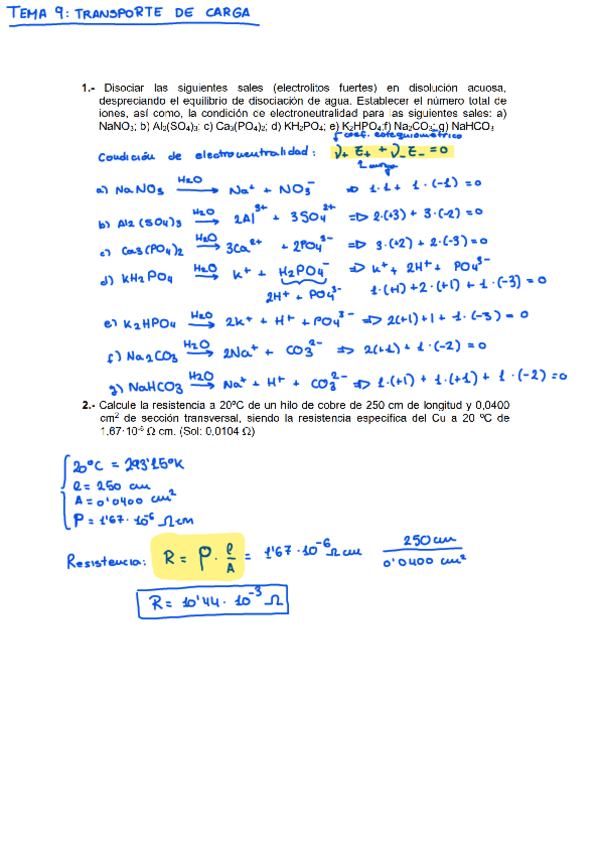 TEMA 9: TRANSPORTE DE CARGA
1.- Disociar las siguientes sales (electrolitos fuertes) en disolución acuosa,
despreciando el equilibrio de disociación de agua. Establecer el número total de
iones, así como, la condición de electroneutralidad para las siguientes sales: a)
NaNO₃; b) Al₂(SO₄)₃; c) Ca₃(PO₄)₂; d) KH₂PO₄; e) K₂HPO₄; f) Na₂CO₃; g) NaHCO₃
coef. estequiométrico
Condición de electroneutralidad: ν₊ z₊ + ν₋ z₋ = 0
carga
a) NaNO₃ —H₂O→ Na⁺ + NO₃⁻ ⇒ 1·1 + 1·(-1) = 0
b) Al₂(SO₄)₃ —H₂O→ 2Al³⁺ + 3SO₄²⁺ ⇒ 2·(+3) + 3·(-2) = 0
c) Ca₃(PO₄)₂ —H₂O→ 3Ca²⁺ + 2PO₄³⁻ ⇒ 3·(+2) + 2·(-3) = 0
d) KH₂PO₄ —H₂O→ K⁺ + H₂PO₄⁻ ⇒ K⁺ + 2H⁺ + PO₄³⁻
2H⁺ + PO₄³⁻ 1·(+1) + 2·(+1) + 1·(-3) = 0
e) K₂HPO₄ —H₂O→ 2K⁺ + H⁺ + PO₄³⁻ ⇒ 2(+1) + 1 + 1·(-3) = 0
f) Na₂CO₃ —H₂O→ 2Na⁺ + CO₃²⁻ ⇒ 2(+1) + 1·(-2) = 0
g) NaHCO₃ —H₂O→ Na⁺ + H⁺ + CO₃²⁻ ⇒ 1·(+1) + 1·(+1) + 1·(-2) = 0
2.- Calcule la resistencia a 20ºC de un hilo de cobre de 250 cm de longitud y 0,0400
cm² de sección transversal, siendo la resistencia específica del Cu a 20 ºC de
1,67·10⁻⁶ Ω cm. (Sol: 0,0104 Ω)
20ºC = 293'15ºK
l = 250 cm
A = 0'0400 cm²
ρ = 1'67·10⁻⁶ Ω cm
Resistencia: R = ρ · l/A = 1'67·10⁻⁶ Ω cm 250 cm / 0'0400 cm²
R = 10'44·10⁻³ Ω